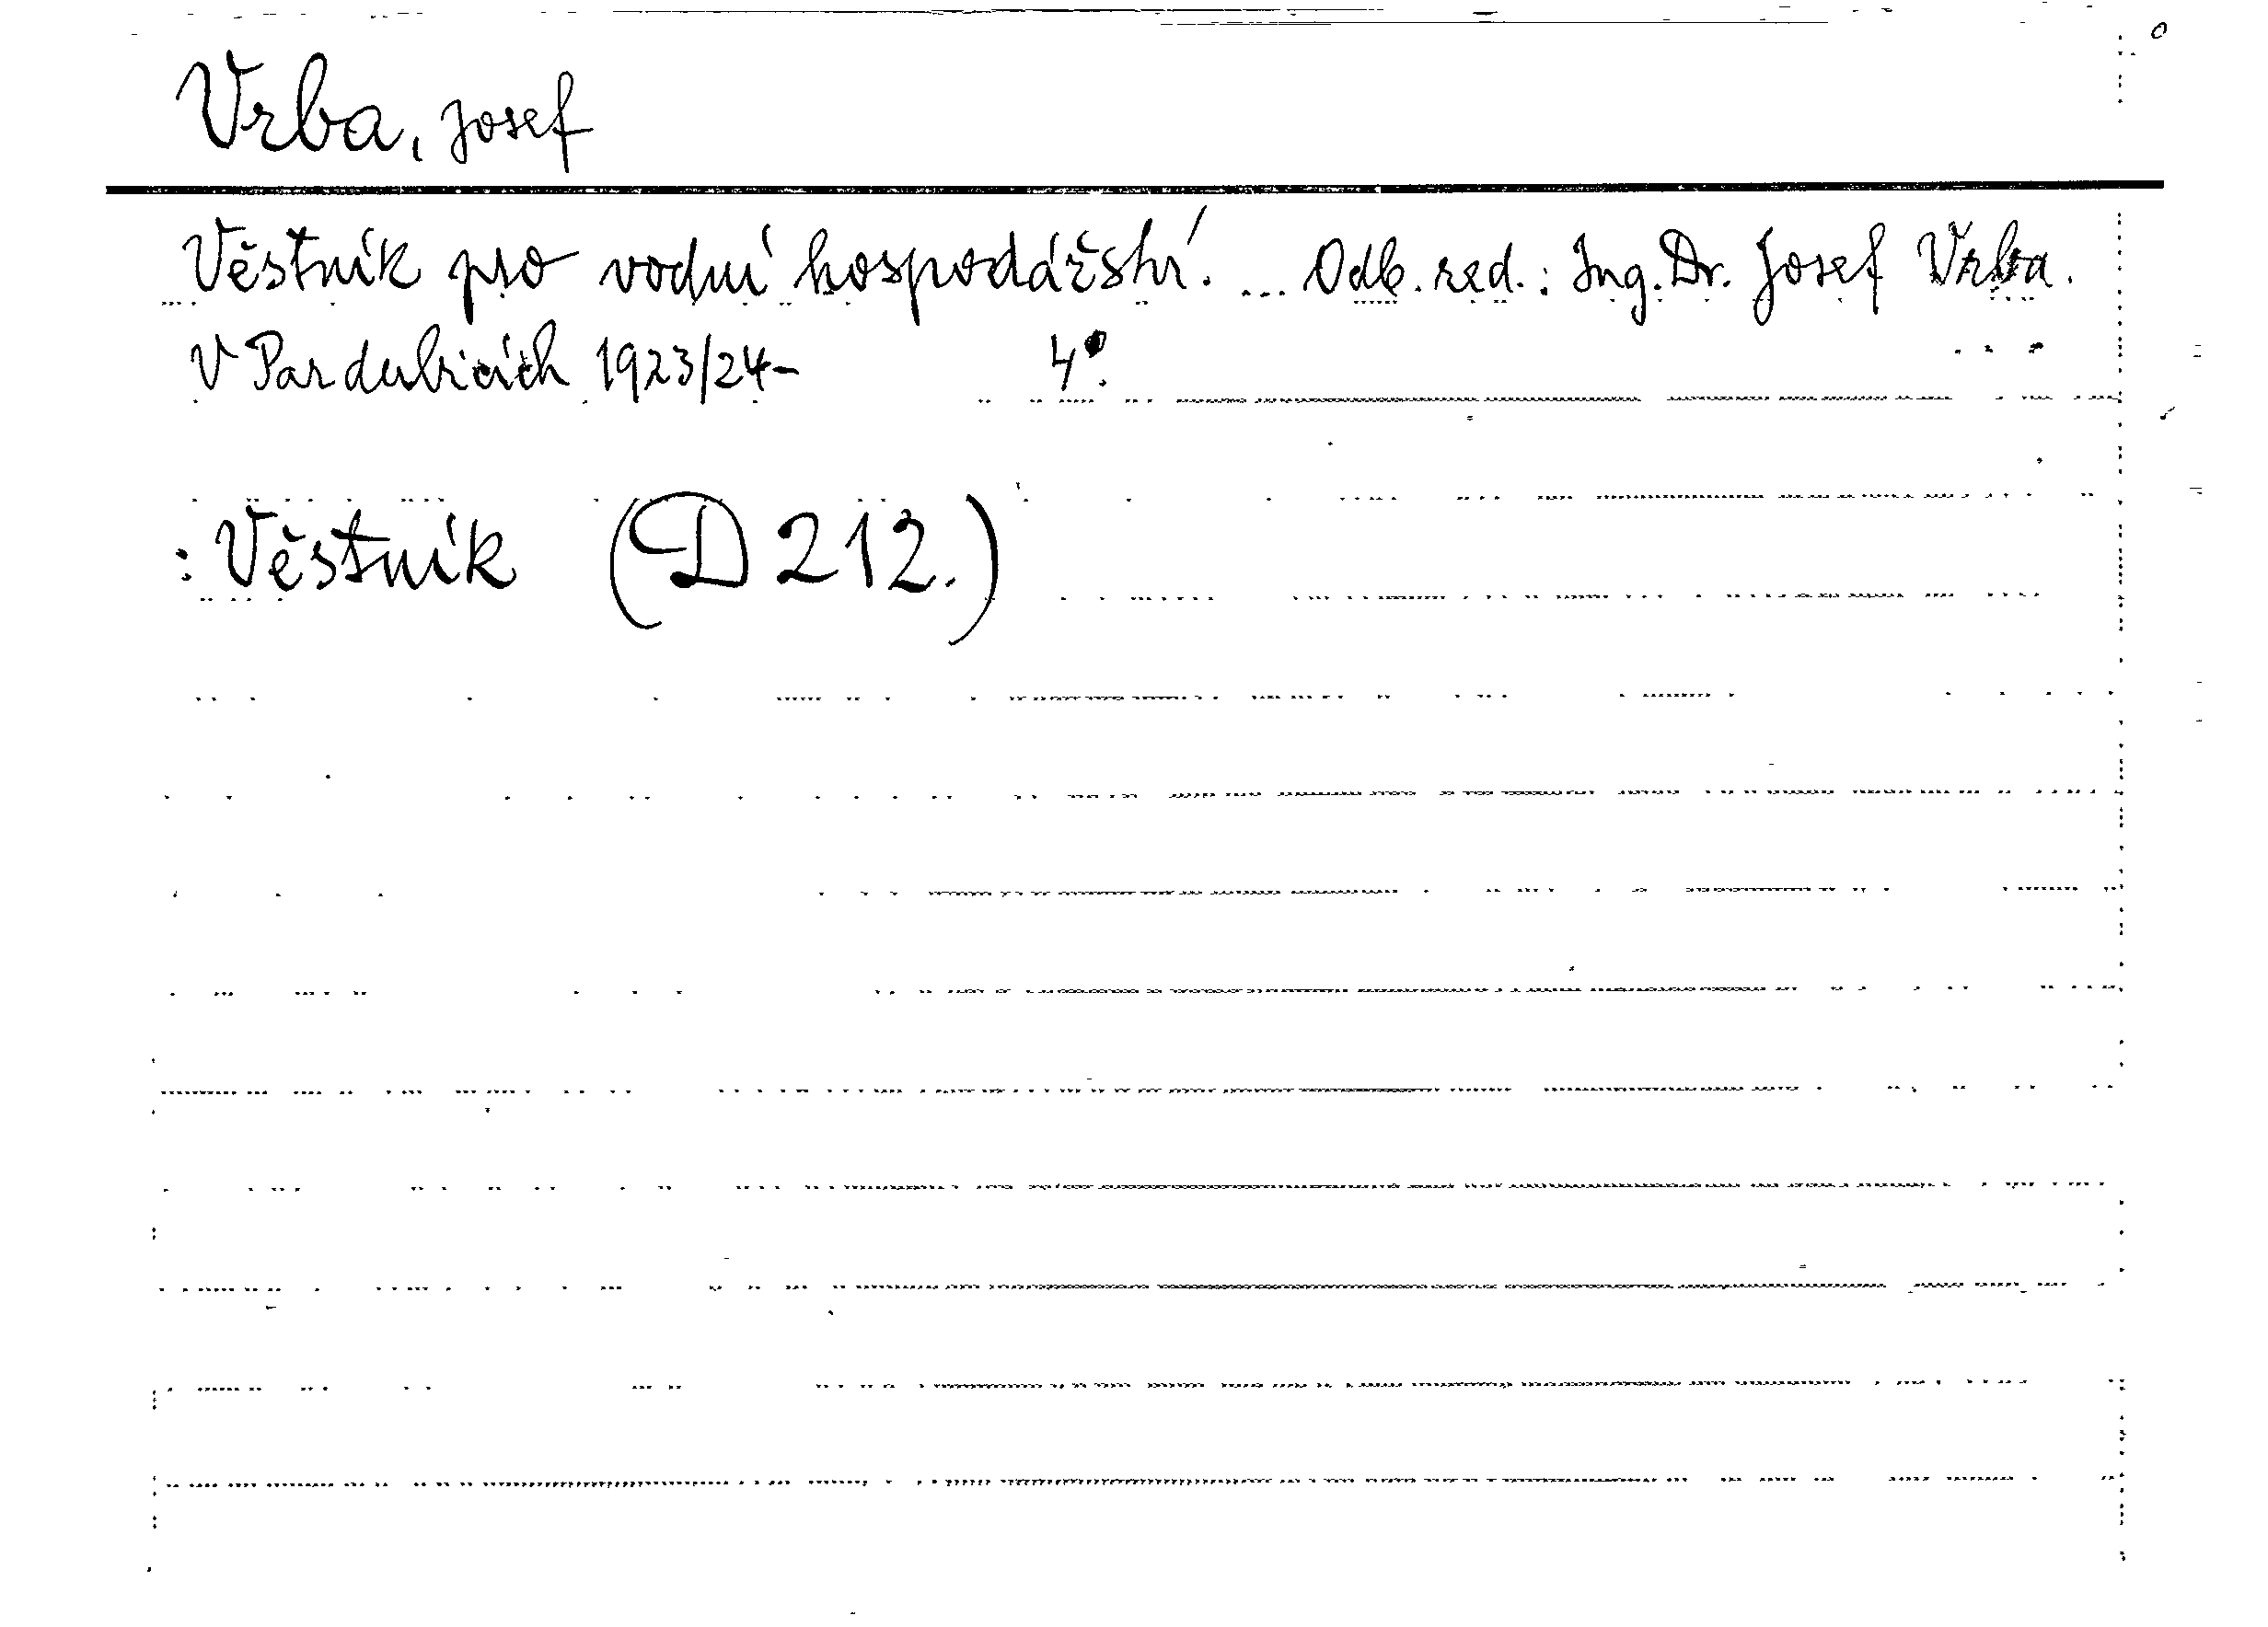 Vrba, Josef
Věstník pro vodní hospodářství. ... Odb. red.: Ing. Dr. Josef Vrba.
V Pardubicích 1923/24- 4°.
: Věstník (D 212.)